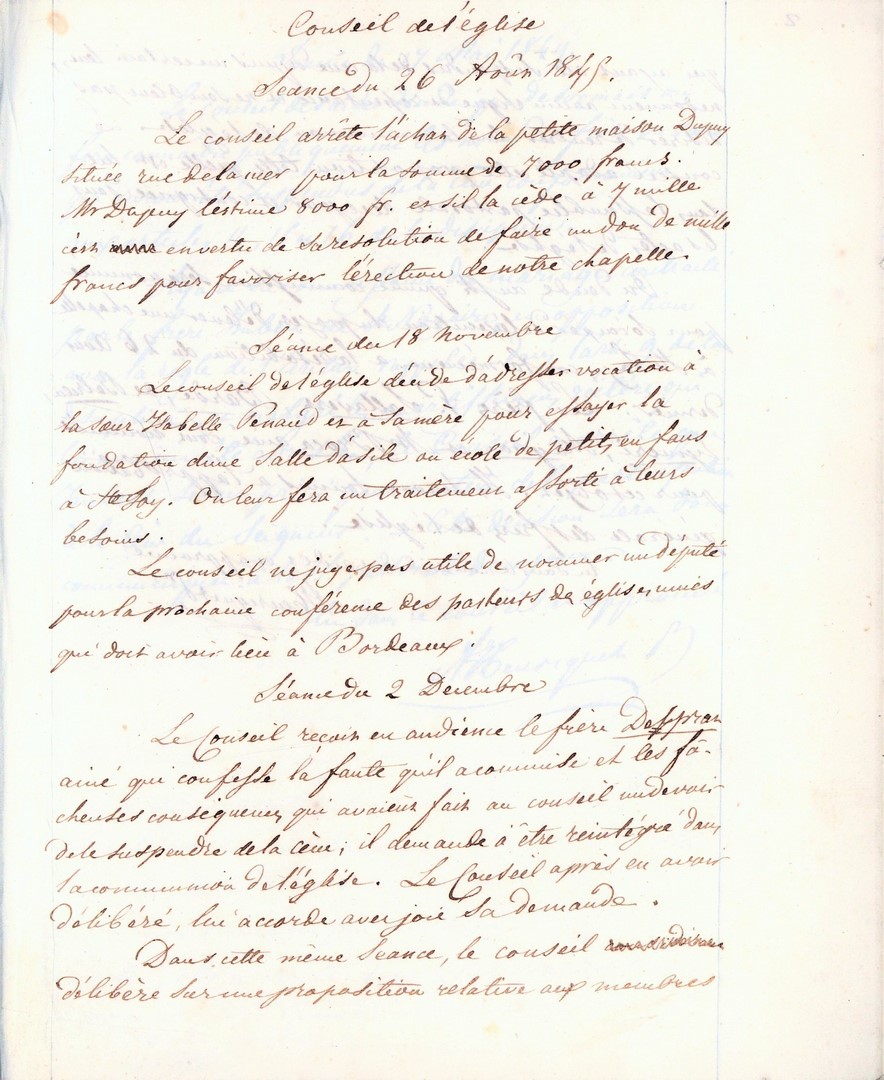 Conseil de l'église
Séance du 26 Août 1845.
Le conseil arrête l'achat de la petite maison Dupuy
située rue de la mer pour la somme de 7000 francs.
Mr Dupuy l'éstime 8000 fr. et s'il la cède à 7 mille
c'est en vertu de sa resolution de faire un don de mille
francs pour favoriser l'érection de notre chapelle.
Séance du 18 Novembre
Le conseil de l'église décide d'adresser vocation à
la sœur Isabelle Penaud et à sa mère pour essayer la
fondation d'une Salle d'asile ou école de petits enfans
à Ste Foy. On leur fera un traitement assorti à leurs
besoins.
Le conseil ne juge pas utile de nommer un député
pour la prochaine conférence des pasteurs de églises unies
qui doit avoir lieu à Bordeaux.
Séance du 2 Decembre
Le Conseil reçoit en audience le frère
ainé qui confesse la faute qu'il a commise et les fâ-
cheuses conséquences qui avaient fait au conseil un devoir
de le suspendre de la cène; il demande à être reintégré dans
la communion de l'église. Le Conseil après en avoir
délibéré, lui accorde avec joie sa demande.
Dans cette même Seance, le conseil
délibère sur une proposition relative aux membres